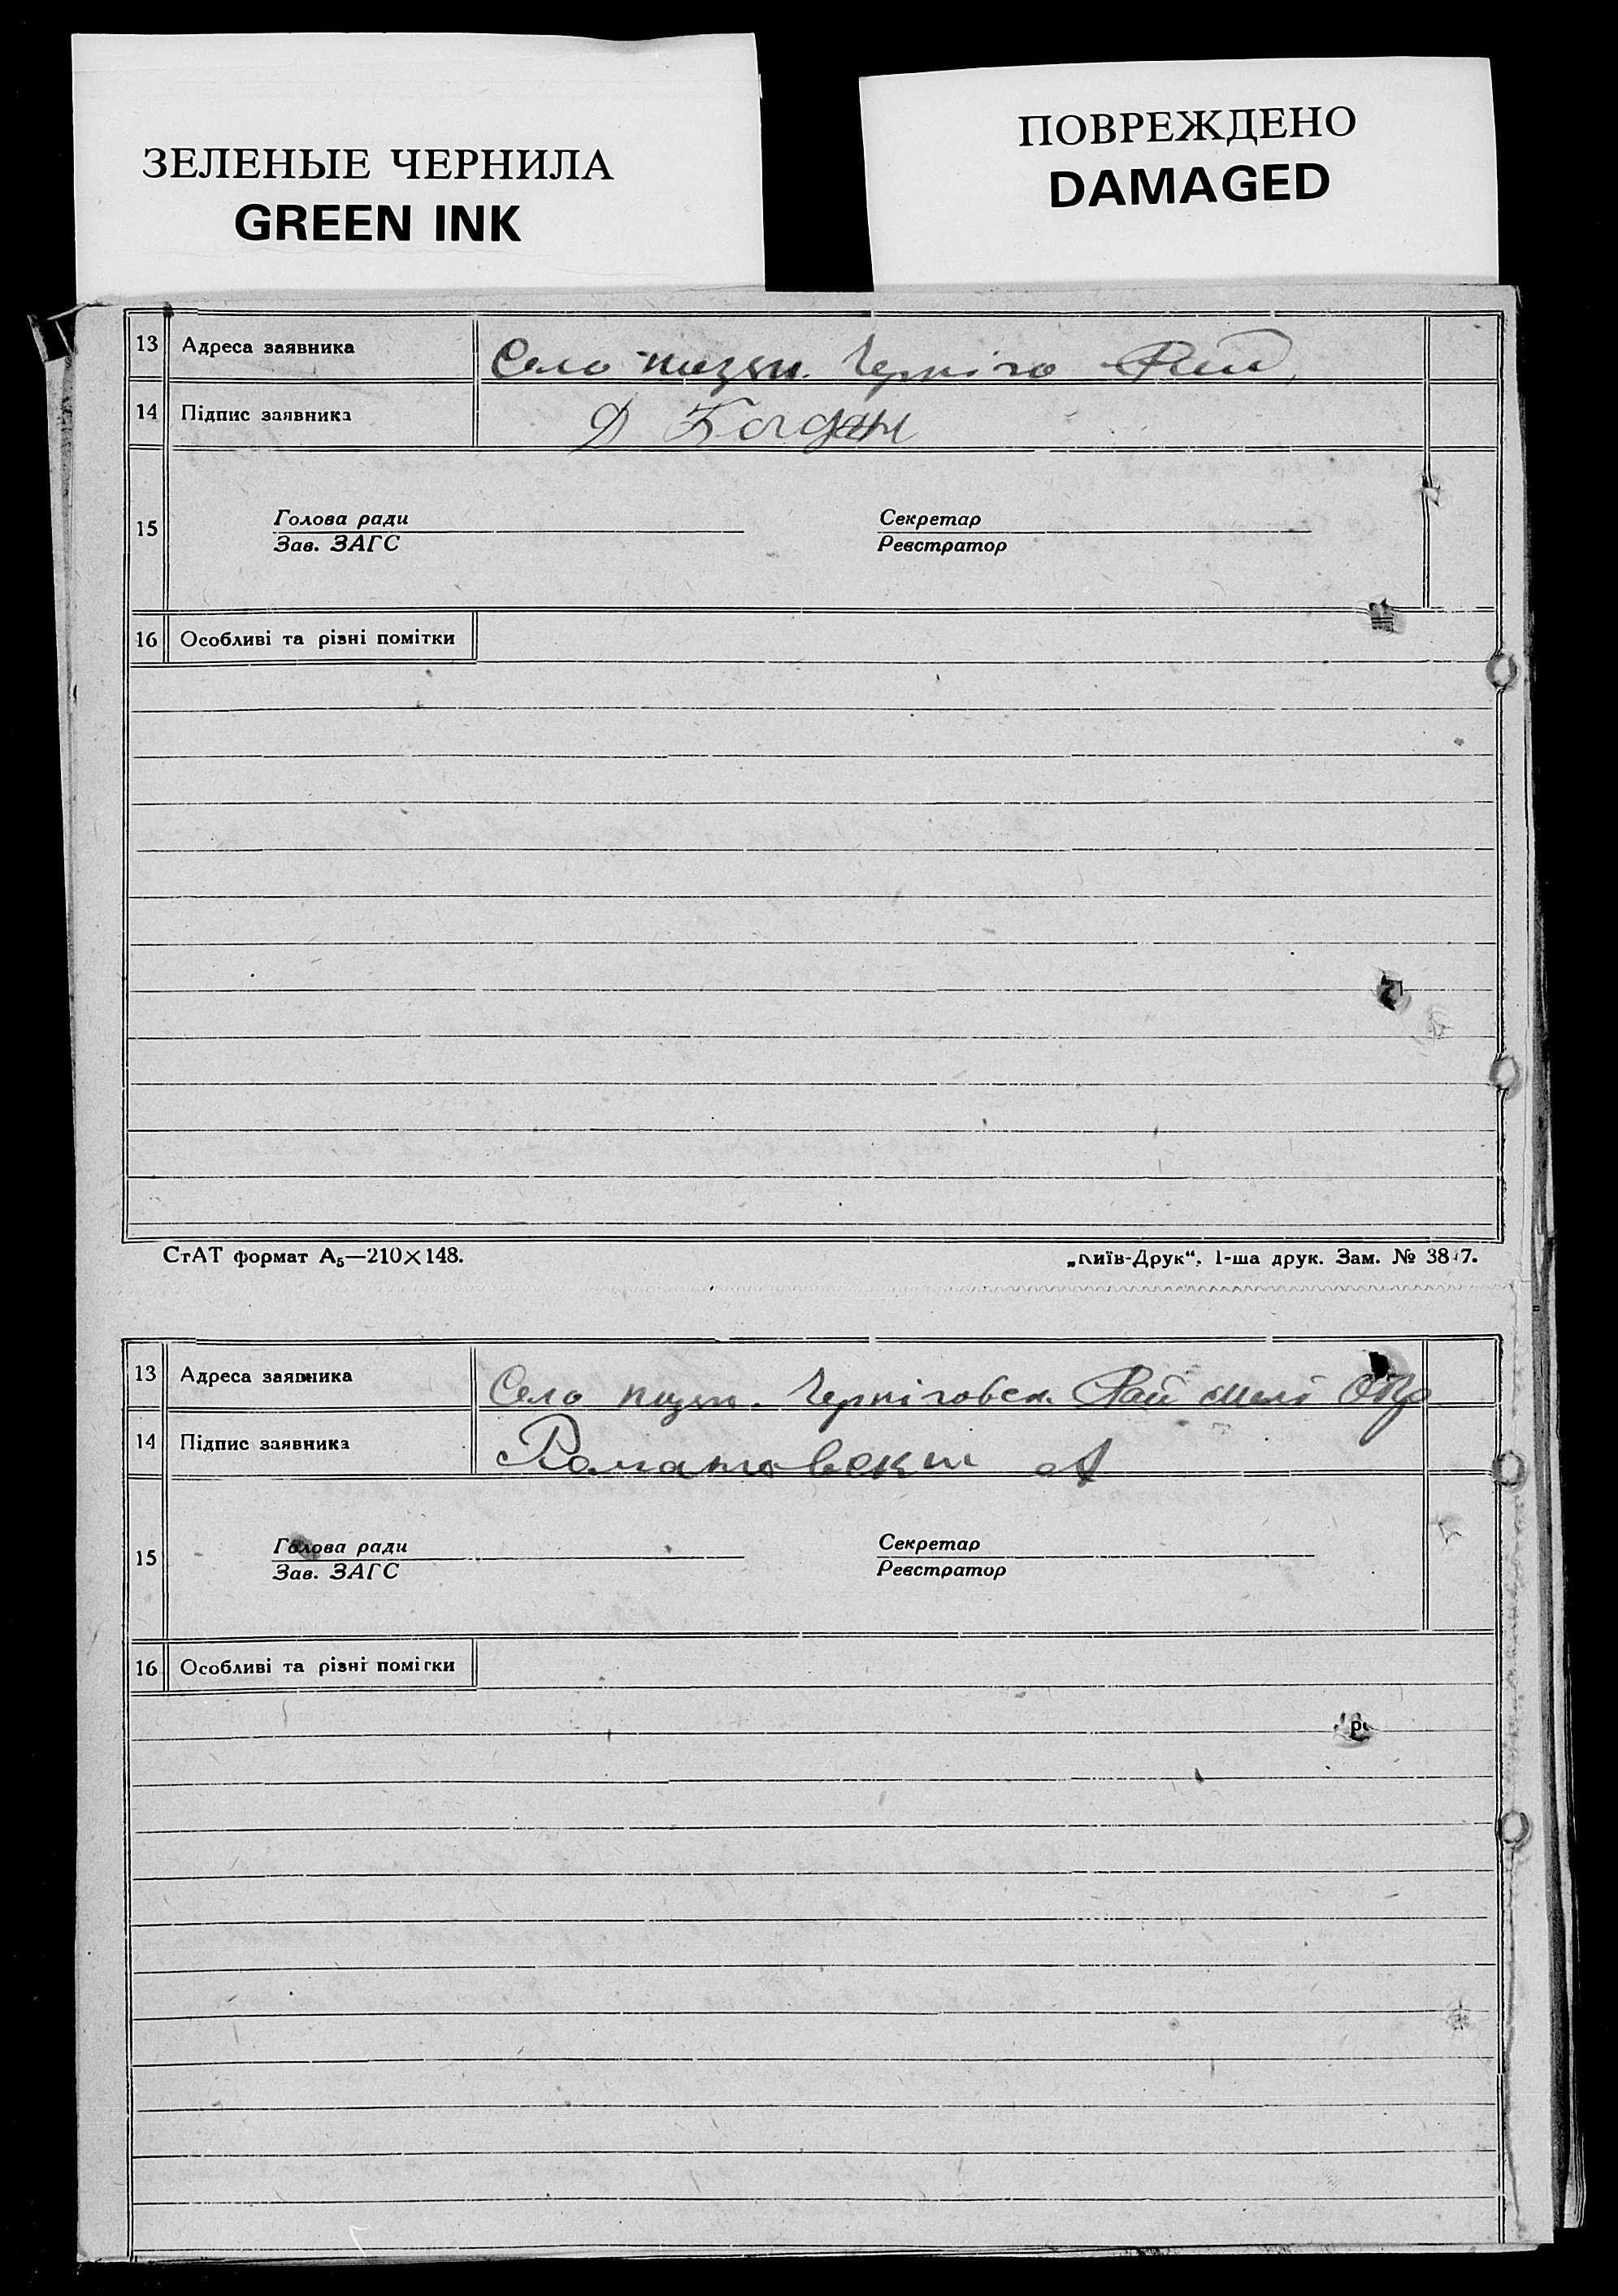 ЗЕЛЕНЫЕ ЧЕРНИЛА
GREEN INK
ПОВРЕЖДЕНО
DAMAGED
13 Адреса заявника Село
14 Підпис заявника Д Богдан
15 Голова ради Секретар
Зав. ЗАГС Реєстратор
16 Особливі та різні помітки
СтАТ формат А₅—210×148. „Київ-Друк“, 1-ша друк. Зам. №
13 Адреса заявника Село Черніговск. Рай
14 Підпис заявника А
15 Голова ради Секретар
Зав. ЗАГС Реєстратор
16 Особливі та різні помітки